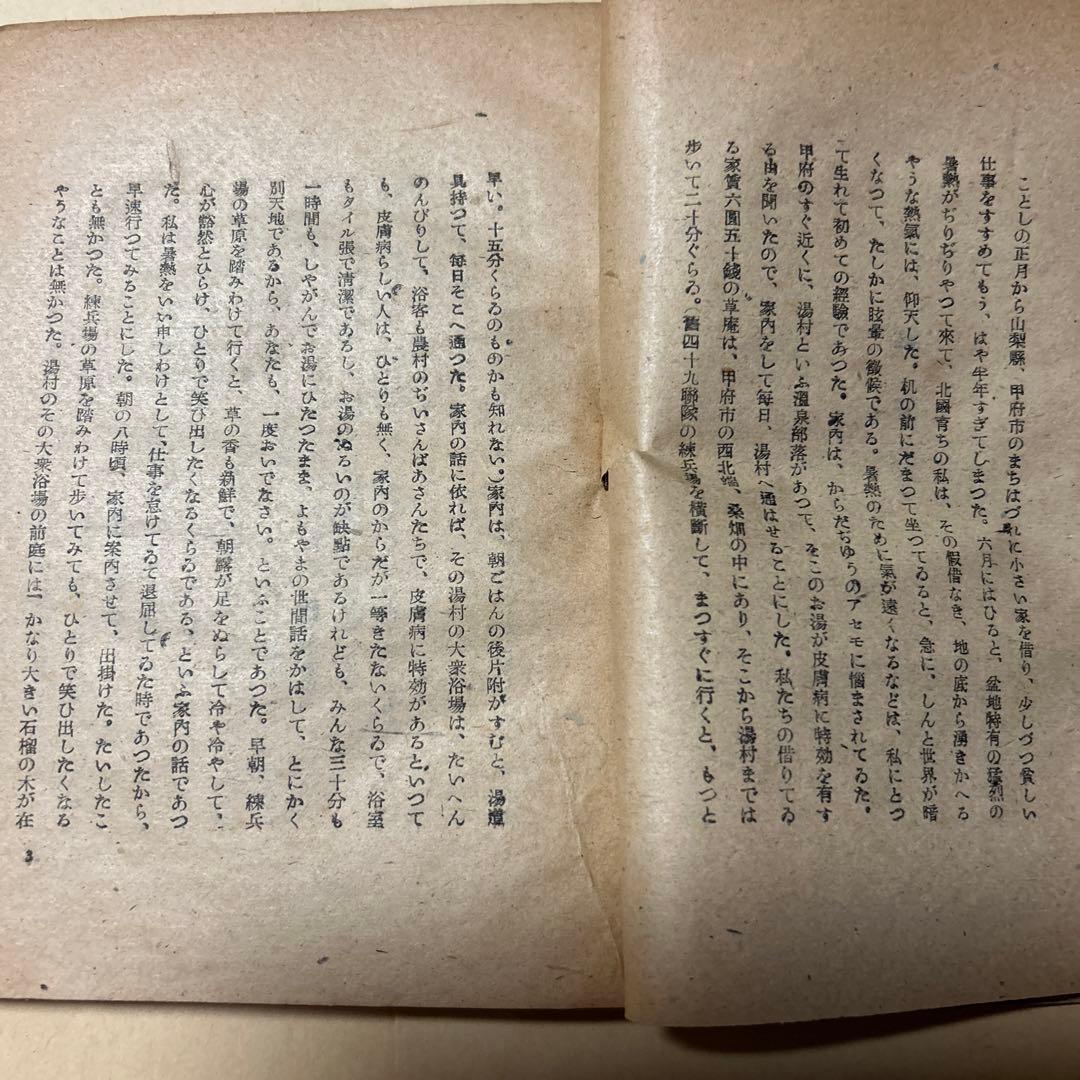 ことしの正月から山梨縣、甲府市のまちはづれに小さい家を借り、少しづつ貧しい
仕事をすすめてもう、はや半年すぎてしまつた。六月にはひると、盆地特有の猛烈の
暑熱がぢりぢりやつて來て、北國育ちの私は、その假借なき、地の底から湧きかへる
やうな熱氣には、仰天した。机の前にだまつて坐つてゐると、急に、しんと世界が暗
くなつて、たしかに眩暈の徴候である。暑熱のために氣が遠くなるなどは、私にとつ
て生れて初めての經驗であつた。家內は、からだぢゆうのアセモに惱まされてゐた。
甲府のすぐ近くに、湯村といふ溫泉部落があつて、そこのお湯が皮膚病に特効を有す
る由を聞いたので、家內をして每日、湯村へ通はせることにした。私たちの借りてゐ
る家賃六圓五十錢の草庵は、甲府市の西北端、桑畑の中にあり、そこから湯村までは
歩いて二十分ぐらゐ。（舊四十九聯隊の練兵場を橫斷して、まつすぐに行くと、もつと
早い。十五分くらゐのものかも知れない。）家內は、朝ごはんの後片附がすむと、湯道
具持つて、每日そこへ通つた。家內の話に依れば、その湯村の大衆浴場は、たいへん
のんびりして、浴客も農村のぢいさんばあさんたちで、皮膚病に特効があるといつて
も、皮膚病らしい人は、ひとりも無く、家內のからだが一等きたないくらゐで、浴室
もタイル張で清潔であるし、お湯のぬるいのが缺點であるけれども、みんな三十分も
一時間も、しやがんでお湯にひたつたまま、よもやまの世間話をかはして、とにかく
別天地であるから、あなたも、一度おいでなさい。といふことであつた。早朝、練兵
場の草原を踏みわけて行くと、草の香も新鮮で、朝露が足をぬらして冷や冷やして、
心が豁然とひらけ、ひとりで笑ひ出したくなるくらゐである、といふ家內の話であつ
た。私は暑熱をいい申しわけとして、仕事を怠けてゐて退屈してゐた時であつたから、
早速行つてみることにした。朝の八時頃、家內に案內させて、出掛けた。たいしたこ
とも無かつた。練兵場の草原を踏みわけて歩いてみても、ひとりで笑ひ出したくなる
やうなことは無かつた。湯村のその大衆浴場の前庭には、かなり大きい石榴の木が在
3